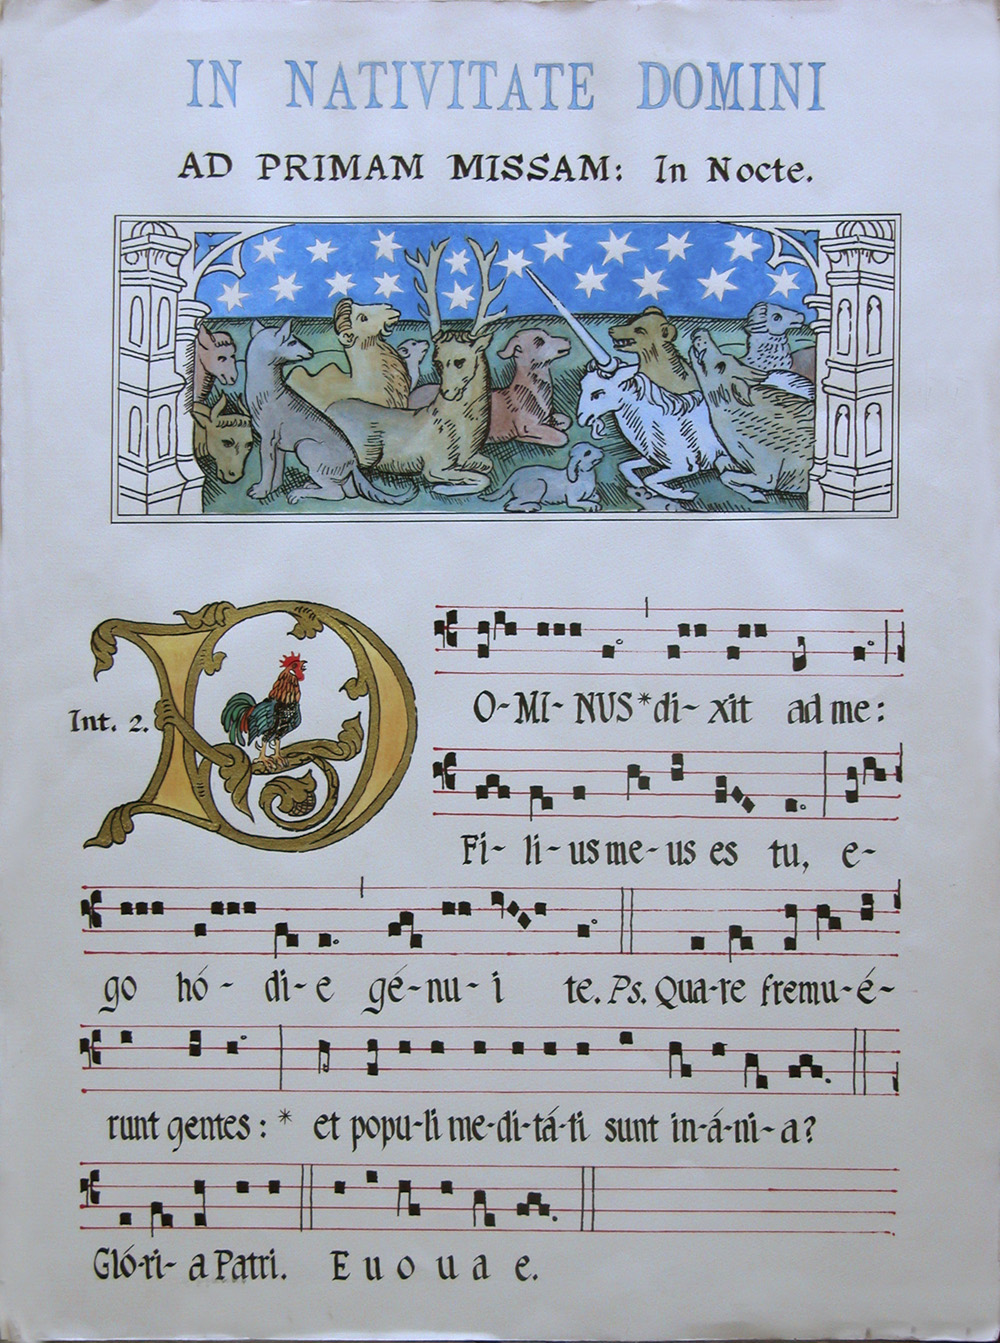 IN NATIVITATE DOMINI
AD PRIMAM MISSAM: In Nocte.
Int. 2.
DO-MI-NUS * di-xit ad me:
Fi-li-us me-us es tu, e-
go hó-di-e gé-nu-i te. Ps. Qua-re fremu-é-
runt gentes: * et popu-li me-di-tá-ti sunt in-á-ni-a?
Gló-ri-a Patri. E u o u a e.